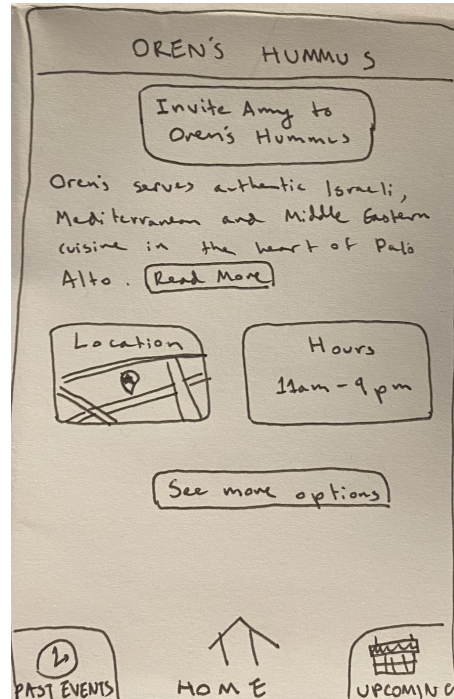 OREN'S HUMMUS
Invite Amy to
Oren's Hummus
Oren's serves authentic Israeli,
Mediterranean and Middle Eastern
cuisine in the heart of Palo
Alto. Read More
Location
Hours
11am - 9pm
See more options
PAST EVENTS
HOME
UPCOMING